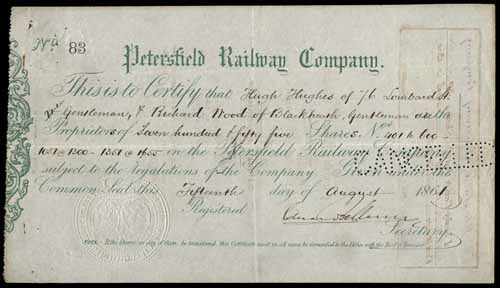 No. 83
Petersfield Railway Company.
This is to Certify that Hugh Hughes of 76 Lombard St
Gentleman, & Richard Wood of Blackheath, Gentleman are the
Proprietors of Seven hundred & fifty five Shares Nos 401 to 600
1051 @ 1300 - 1351 @ 1655 in the Petersfield Railway Company
subject to the Regulations of the Company Given under the
Common Seal this Fifteenth day of August 1861
Registered
Secretary.
NOTE. If the Shares or any of them be transferred, this Certificate must in all cases be forwarded to the Office with the Deed of Transfer.
CANCELLED